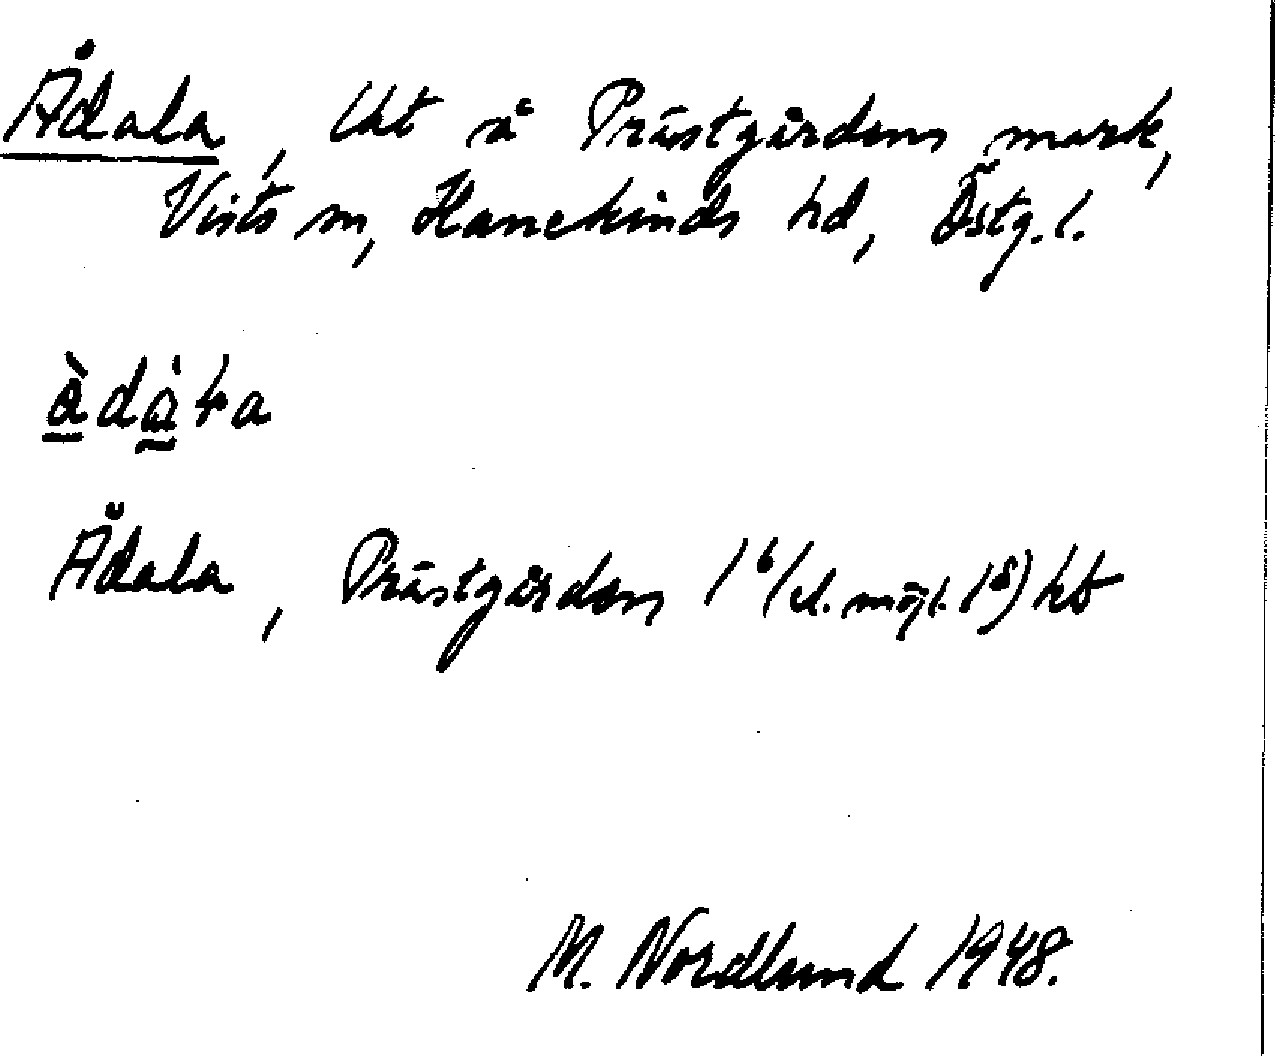 Ådala, lht å Prästgårdens mark,
Vists sn, Hanekinds hd, Östg. l.
å̀dàƚa
Ådala, Prästgården 1⁶/(el. möjl. 1⁵) hb
M. Nordlund 1948.